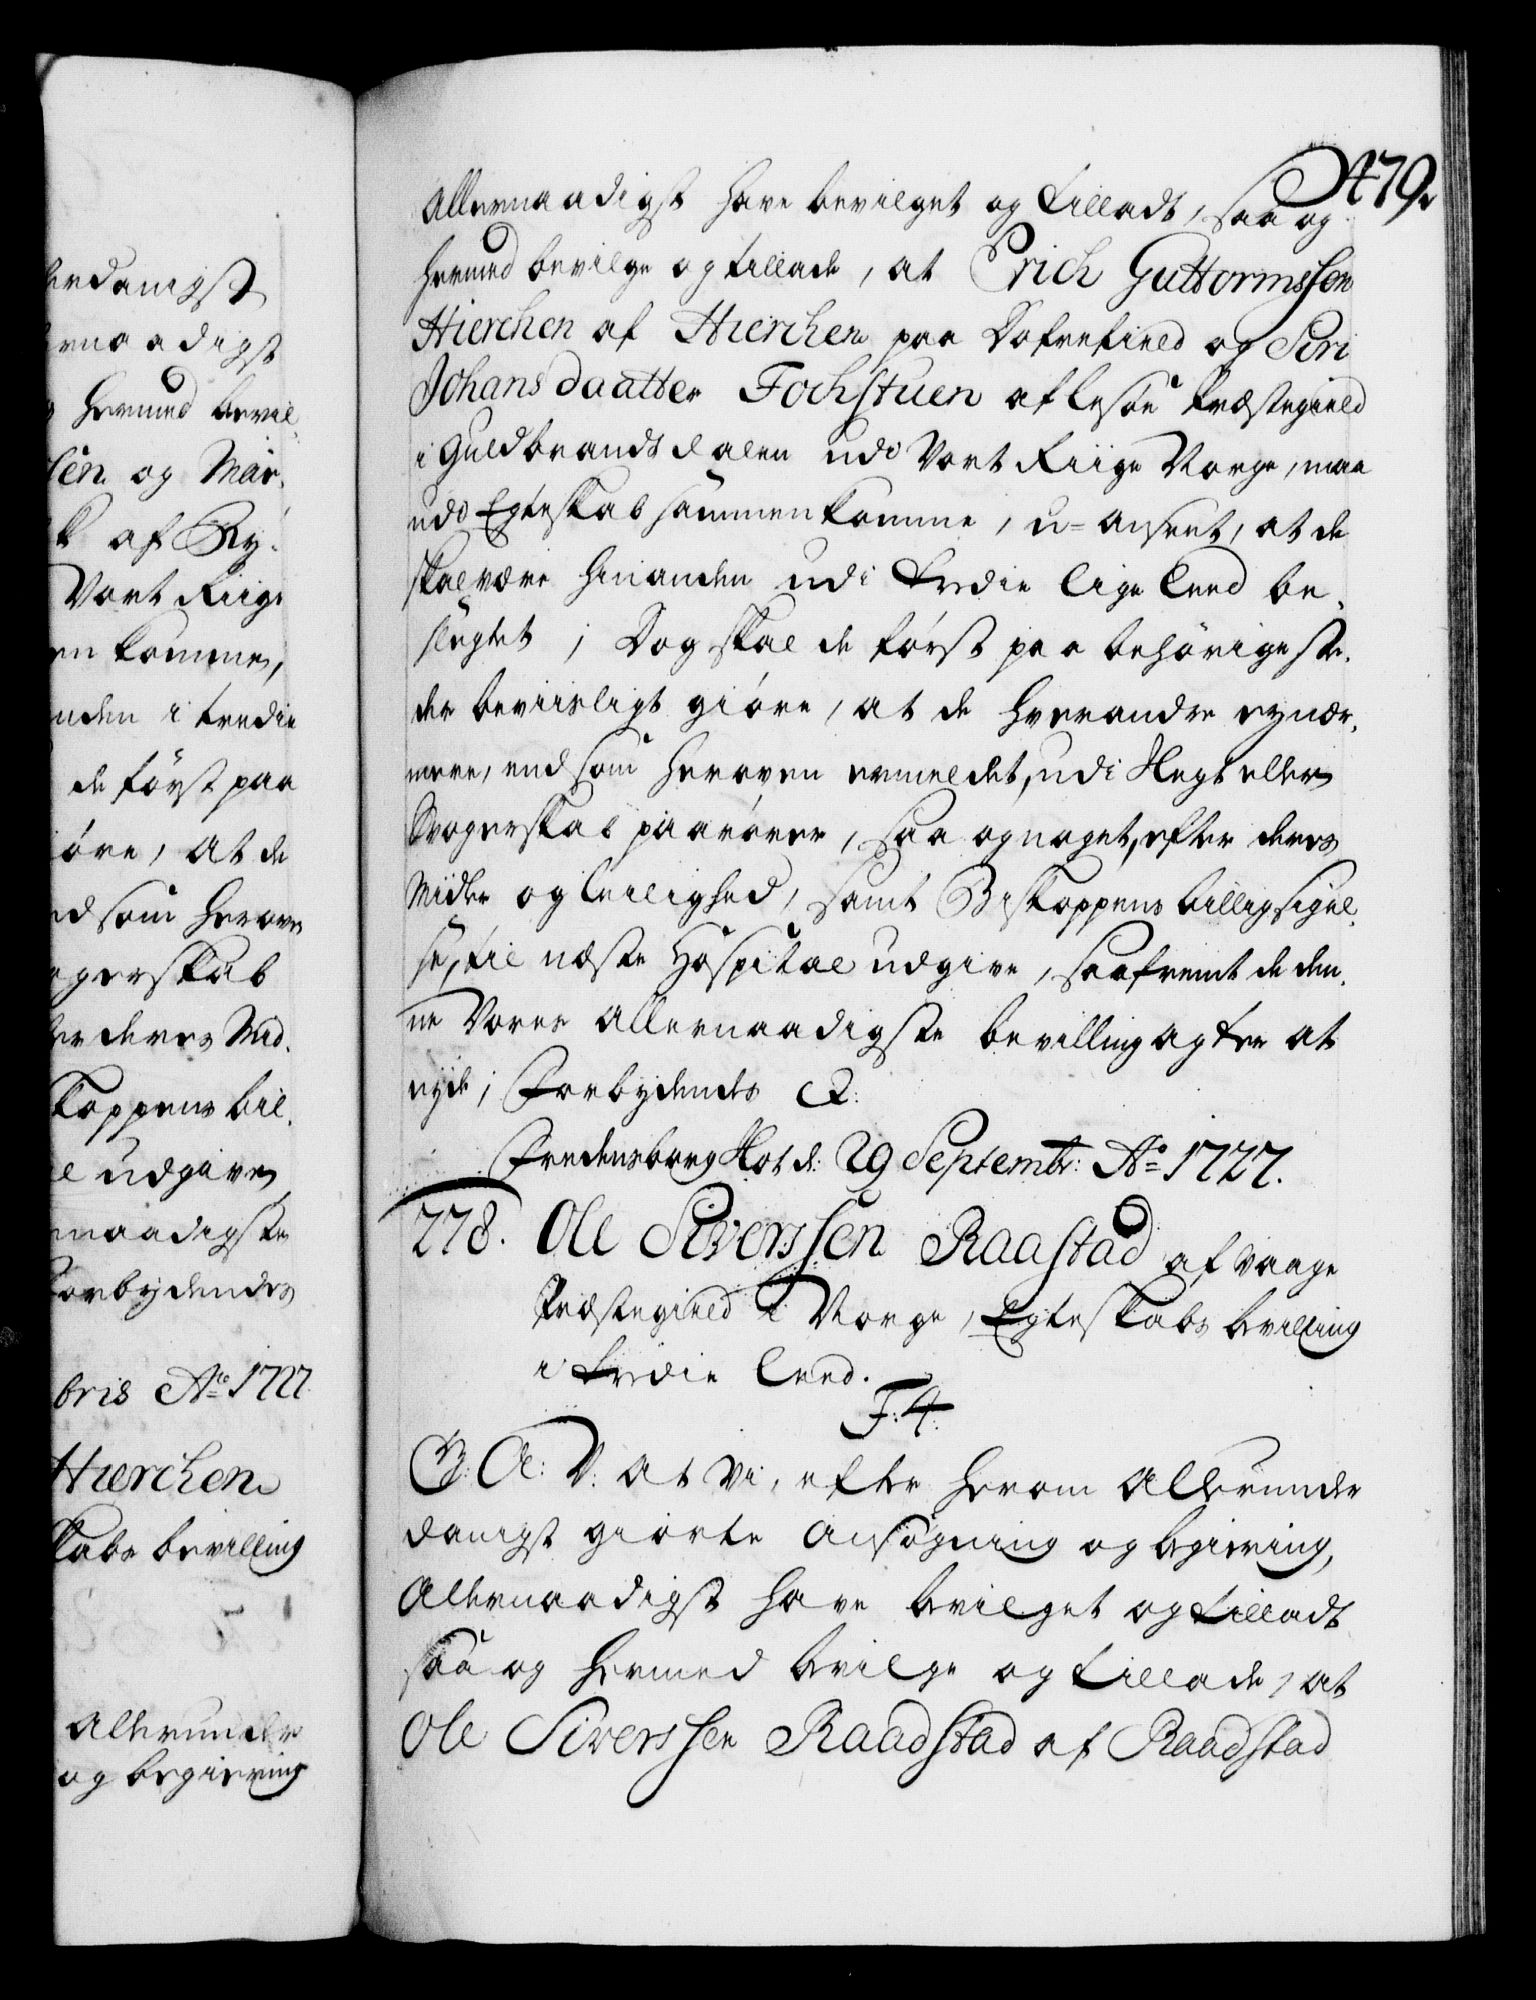 erdanigst
ernaadigst
hermed bevil-
sen og Mar-
k af Ry-
Vort Riige
en komme,
nden i tredie
de först paa
iöre, at de
d som heroven
ogerskab
er deres Mid-
koppens bil-
l udgive
rnaadigste
Forbydendes
bris Ao 1727.
Hierchen
skabs bevilling
Allerunder
og begiering
479.
Allernaadigst have bevilget og tilladt, saa og
hermed bevilge og tillade, at Erich Guttormssen
Hierchen af Hierchen paa Dofrefield og Siri
Johansdaatter Fochstuen af Lessöe Præstegield
i Guldbrandsdalen udi Vort Riige Norge, maa
udi Egteskab sammenkomme, u-anseet, at de
skal være hinanden udi tredie lige Leed be-
slegtet; Dog skal de först paa behörige ste-
der beviisligt giöre, at de hverandre ey nær-
mere, end som heroven ermeldet, udi Slegt eller
Svogerskab paarörer, saa og noget, efter deres
Midler og Leilighed, samt Biskoppens billig sigel-
se, til næste Hospital udgive, saafremt de den-
ne Vores Allernaadigste bevilling agter at
nyde; Forbydendes &:
Fredensborg Slot d: 29 Septembr: Ao 1727.
278. Ole Siverssen Raastad af Vaage
Præstegield i Norge, Egteskabs bevilling
i tredie Leed.
F:4.
G: A: V: at Vi, efter herom Allerunder
danigst giorte Ansögning og begiering,
Allernaadigst have bevilget og tilladt
saa og hermed bevilge og tillade, at
Ole Siverssen Raadstad af Raadstad